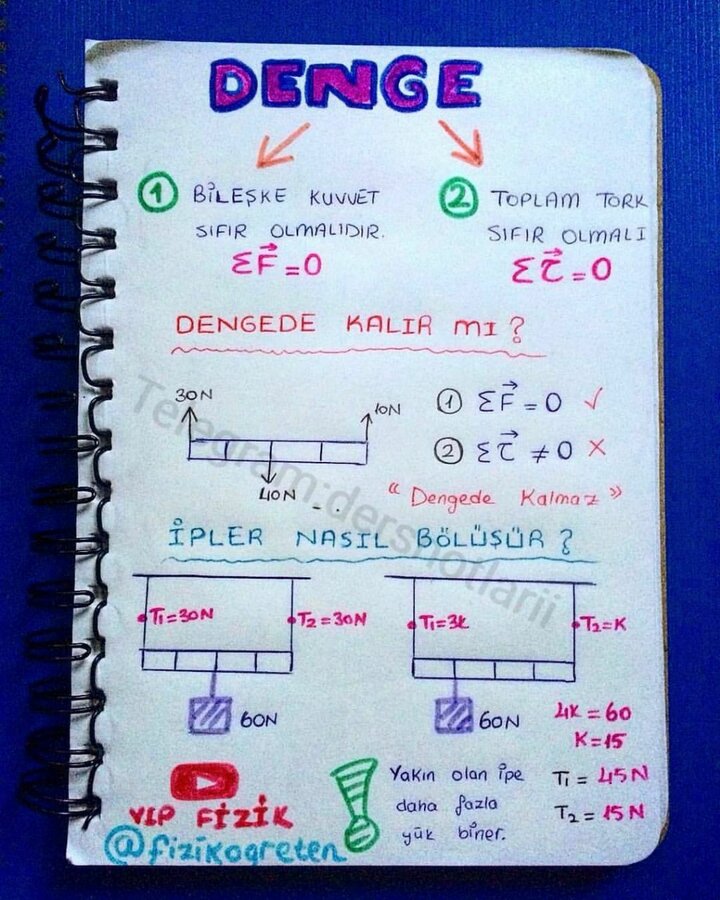 DENGE
① BİLEŞKE KUVVET
SIFIR OLMALIDIR.
ΣF⃗ = 0
② TOPLAM TORK
SIFIR OLMALI
Στ⃗ = 0
DENGEDE KALIR MI ?
30N
10N
40N
① ΣF⃗ = 0 ✓
② Στ⃗ ≠ 0 ×
“ Dengede Kalmaz ”
İPLER NASIL BÖLÜŞÜR ?
T1=30N
T2=30N
60N
T1=3k
T2=K
60N
4K = 60
K=15
T1 = 45N
T2 = 15N
Yakın olan ipe
daha fazla
yük biner.
VIP FİZİK
@fizikogreten
Telegram:dersnotlarii